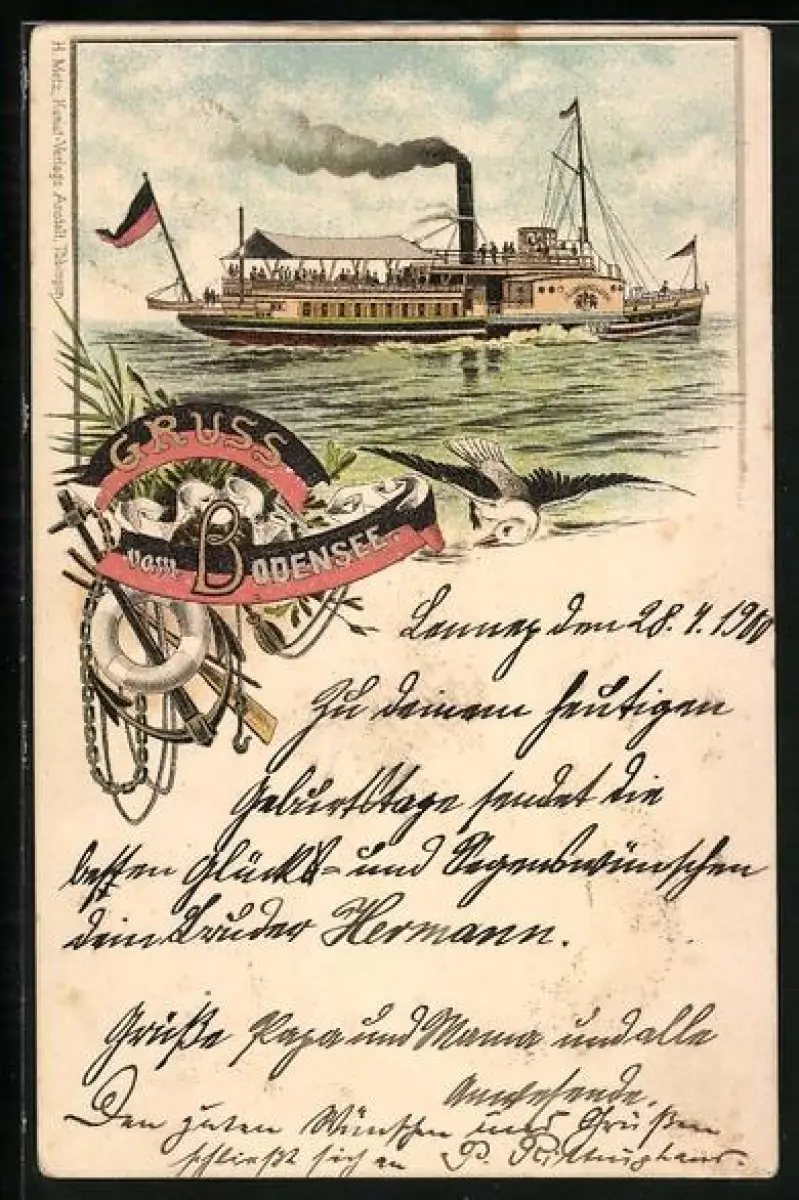 H. Metz, Kunst-Verlags-Anstalt, Tübingen
GRUSS
vom BODENSEE.
Lennep den 28. 4. 1900
Zu deinem heutigen
Geburtstage sendet die
besten Glücks- und Segenswünschen
dein Bruder Hermann.
Grüße Papa und Mama und alle
Anwesende.
Den guten Wünschen und Grüßen
schließt sich an P. Rittinghaus.